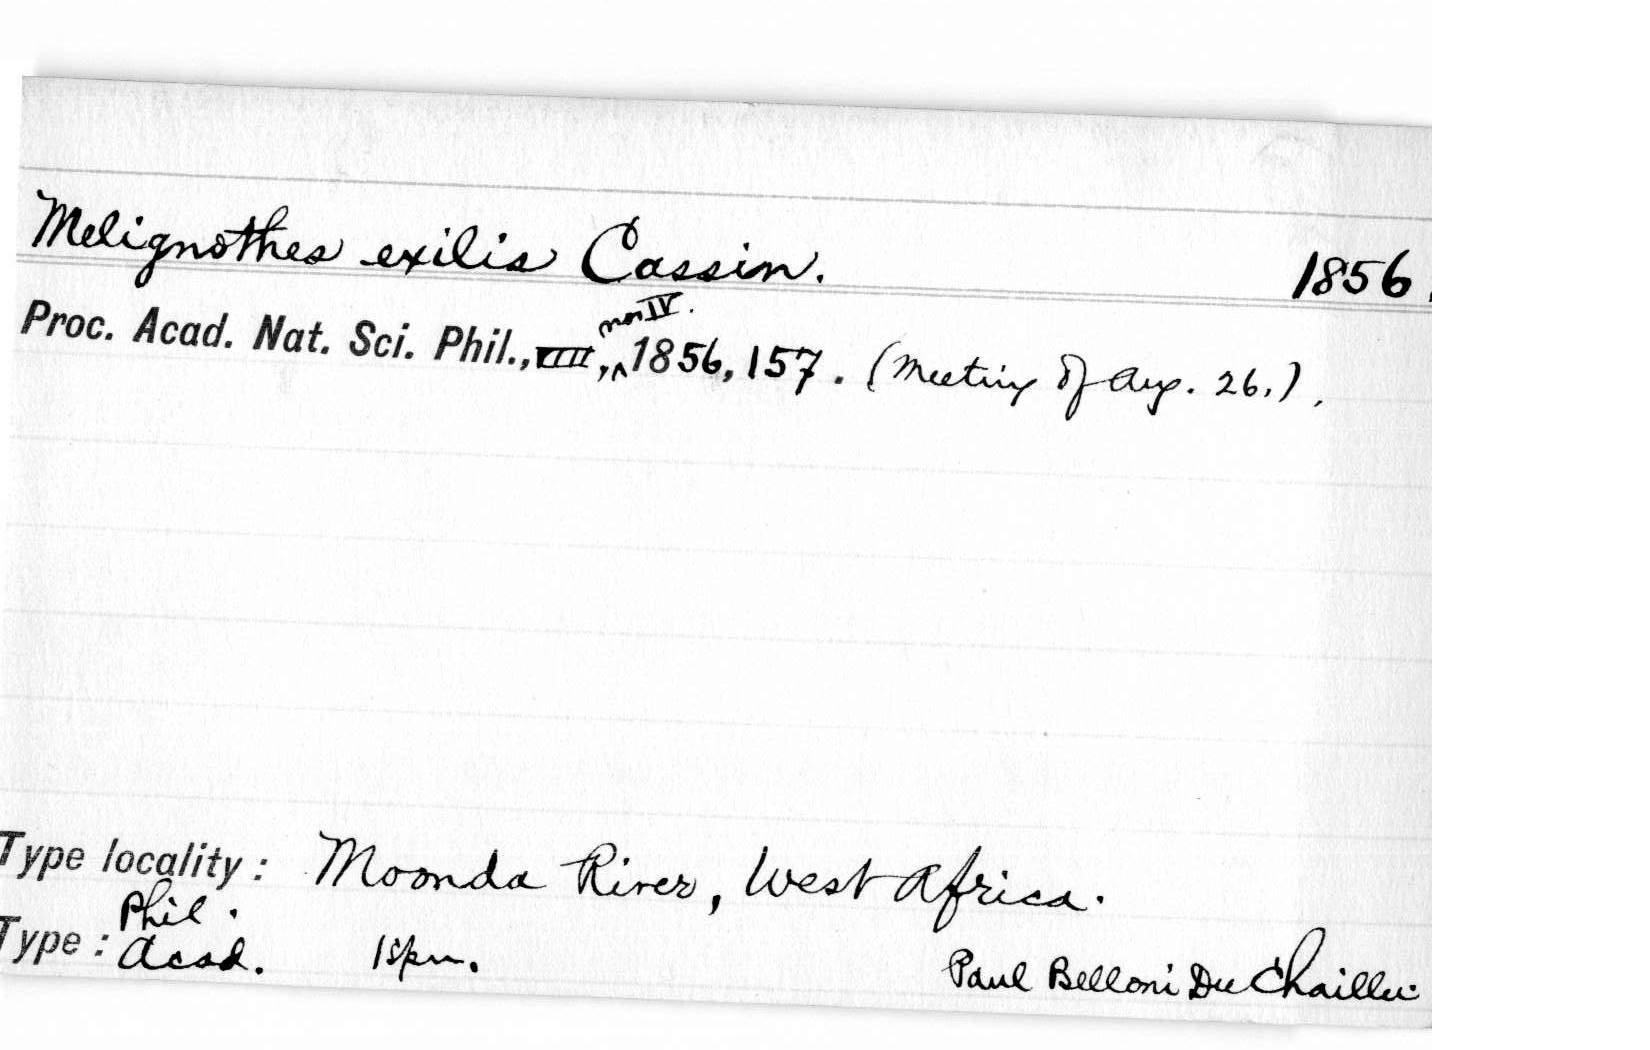 Melignothes exilis Cassin. 1856.
no IV.
Proc. Acad. Nat. Sci. Phil., VIII, ^ 1856, 157. (Meeting of Aug. 26.).
Type locality: Moonda River, West Africa.
Phil.
Type: Acad. 1 spm. Paul Belloni Du Chaillu.